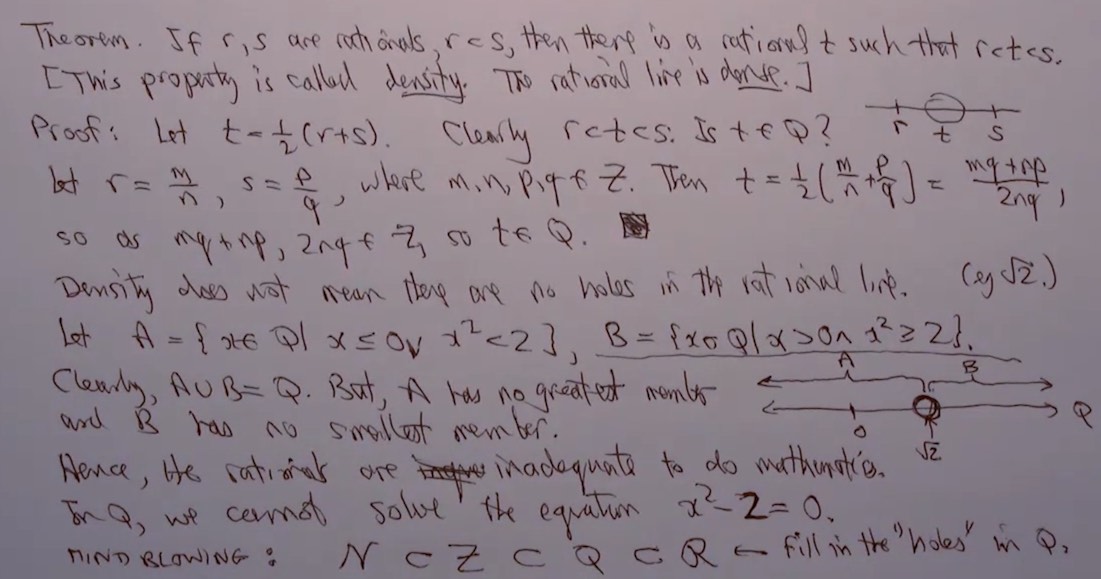 Theorem. If r,s are rationals, r<s, then there is a rational t such that r<t<s.
[This property is called density. The rational line is dense.]
Proof: Let t = ½(r+s). Clearly r<t<s. Is t ∈ Q?
r t s
Let r = m/n, s = p/q, where m,n,p,q ∈ Z. Then t = ½(m/n + p/q) = (mq+np)/2nq,
so as mq+np, 2nq ∈ Z, so t ∈ Q.
Density does not mean there are no holes in the rational line. (eg √2.)
Let A = {x∈Q | x ≤ 0 ∨ x² < 2}, B = {x∈Q | x > 0 ∧ x² ≥ 2}.
Clearly, A∪B = Q. But, A has no greatest member
and B has no smallest member.
A B
0 √2 Q
Hence, the rationals are inadequate to do mathematics.
In Q, we cannot solve the equation x² - 2 = 0.
MIND BLOWING: N ⊂ Z ⊂ Q ⊂ R ← fill in the "holes" in Q.